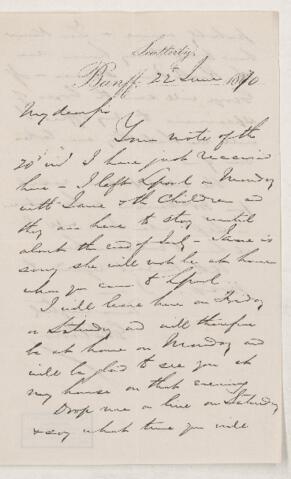 Banff. 22d June 1870
My dear Sir
Your note of the
20 inst I have just received
here - I left Lpool on Monday
with Janie & the Children and
they are here to stay until
about the end of July - Janie is
sorry she will not be at home
when you come to Lpool.
I will leave here on Friday
or Saturday and will therefore
be at home on Monday and
will be glad to see you at
my house on that evening
Drop me a line on Saturday
& say what time you will